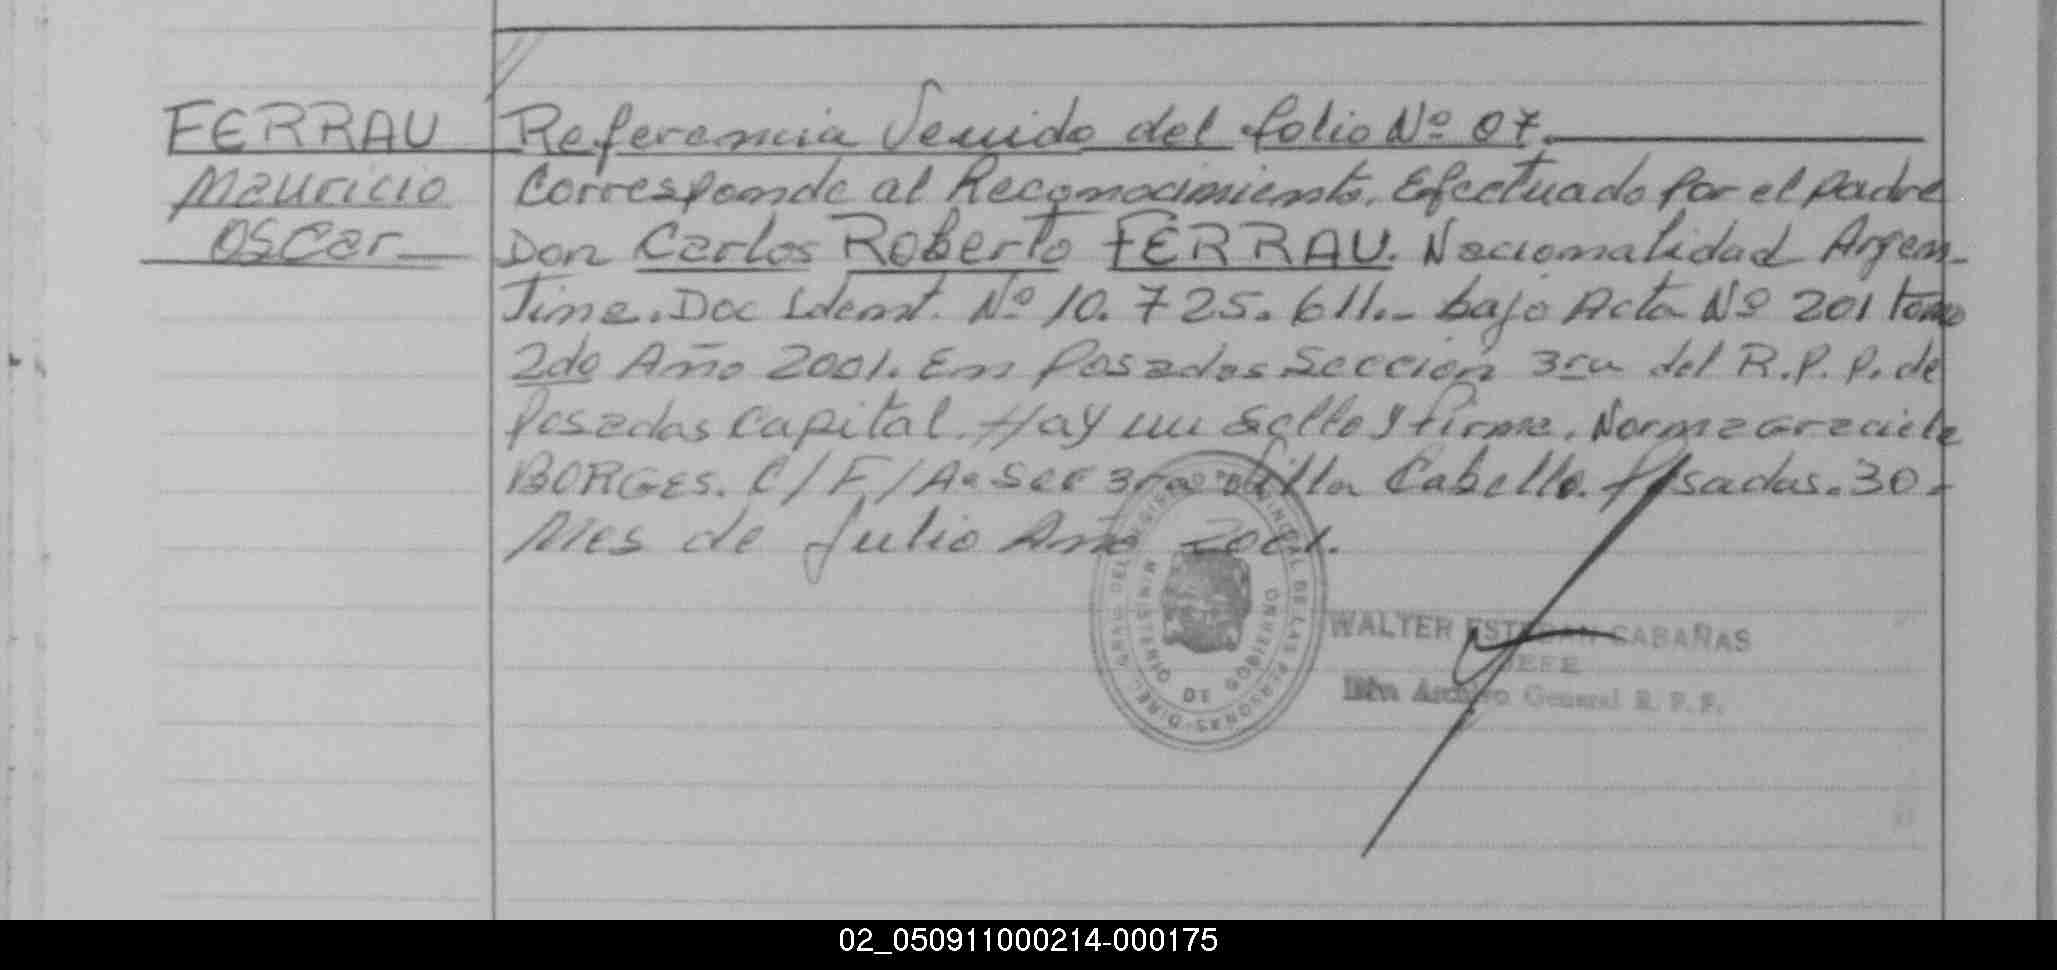 FERRAU Referencia Venido del folio Nº 07.
Mauricio Corresponde al Reconocimiento. Efectuado por el padre
Oscar Don Carlos Roberto FERRAU. Nacionalidad Argen-
tina. Doc Ident. Nº 10.725.611.- bajo Acta Nº 201 tomo
2do Año 2001. En Posadas Sección 3ra del R.P.P. de
Posadas Capital. Hay un Sello y firma. Norma Graciela
BORGES. C/F/Aª Sec 3ra Villa Cabello. Posadas. 30-
Mes de Julio Año 2001.
DIREC. GRAL. DEL REGISTRO PROVINCIAL DE LAS PERSONAS
MINISTERIO DE GOBIERNO
WALTER ESTEBAN CABAÑAS
JEFE
Archivo General R.P.P.
02_050911000214-000175